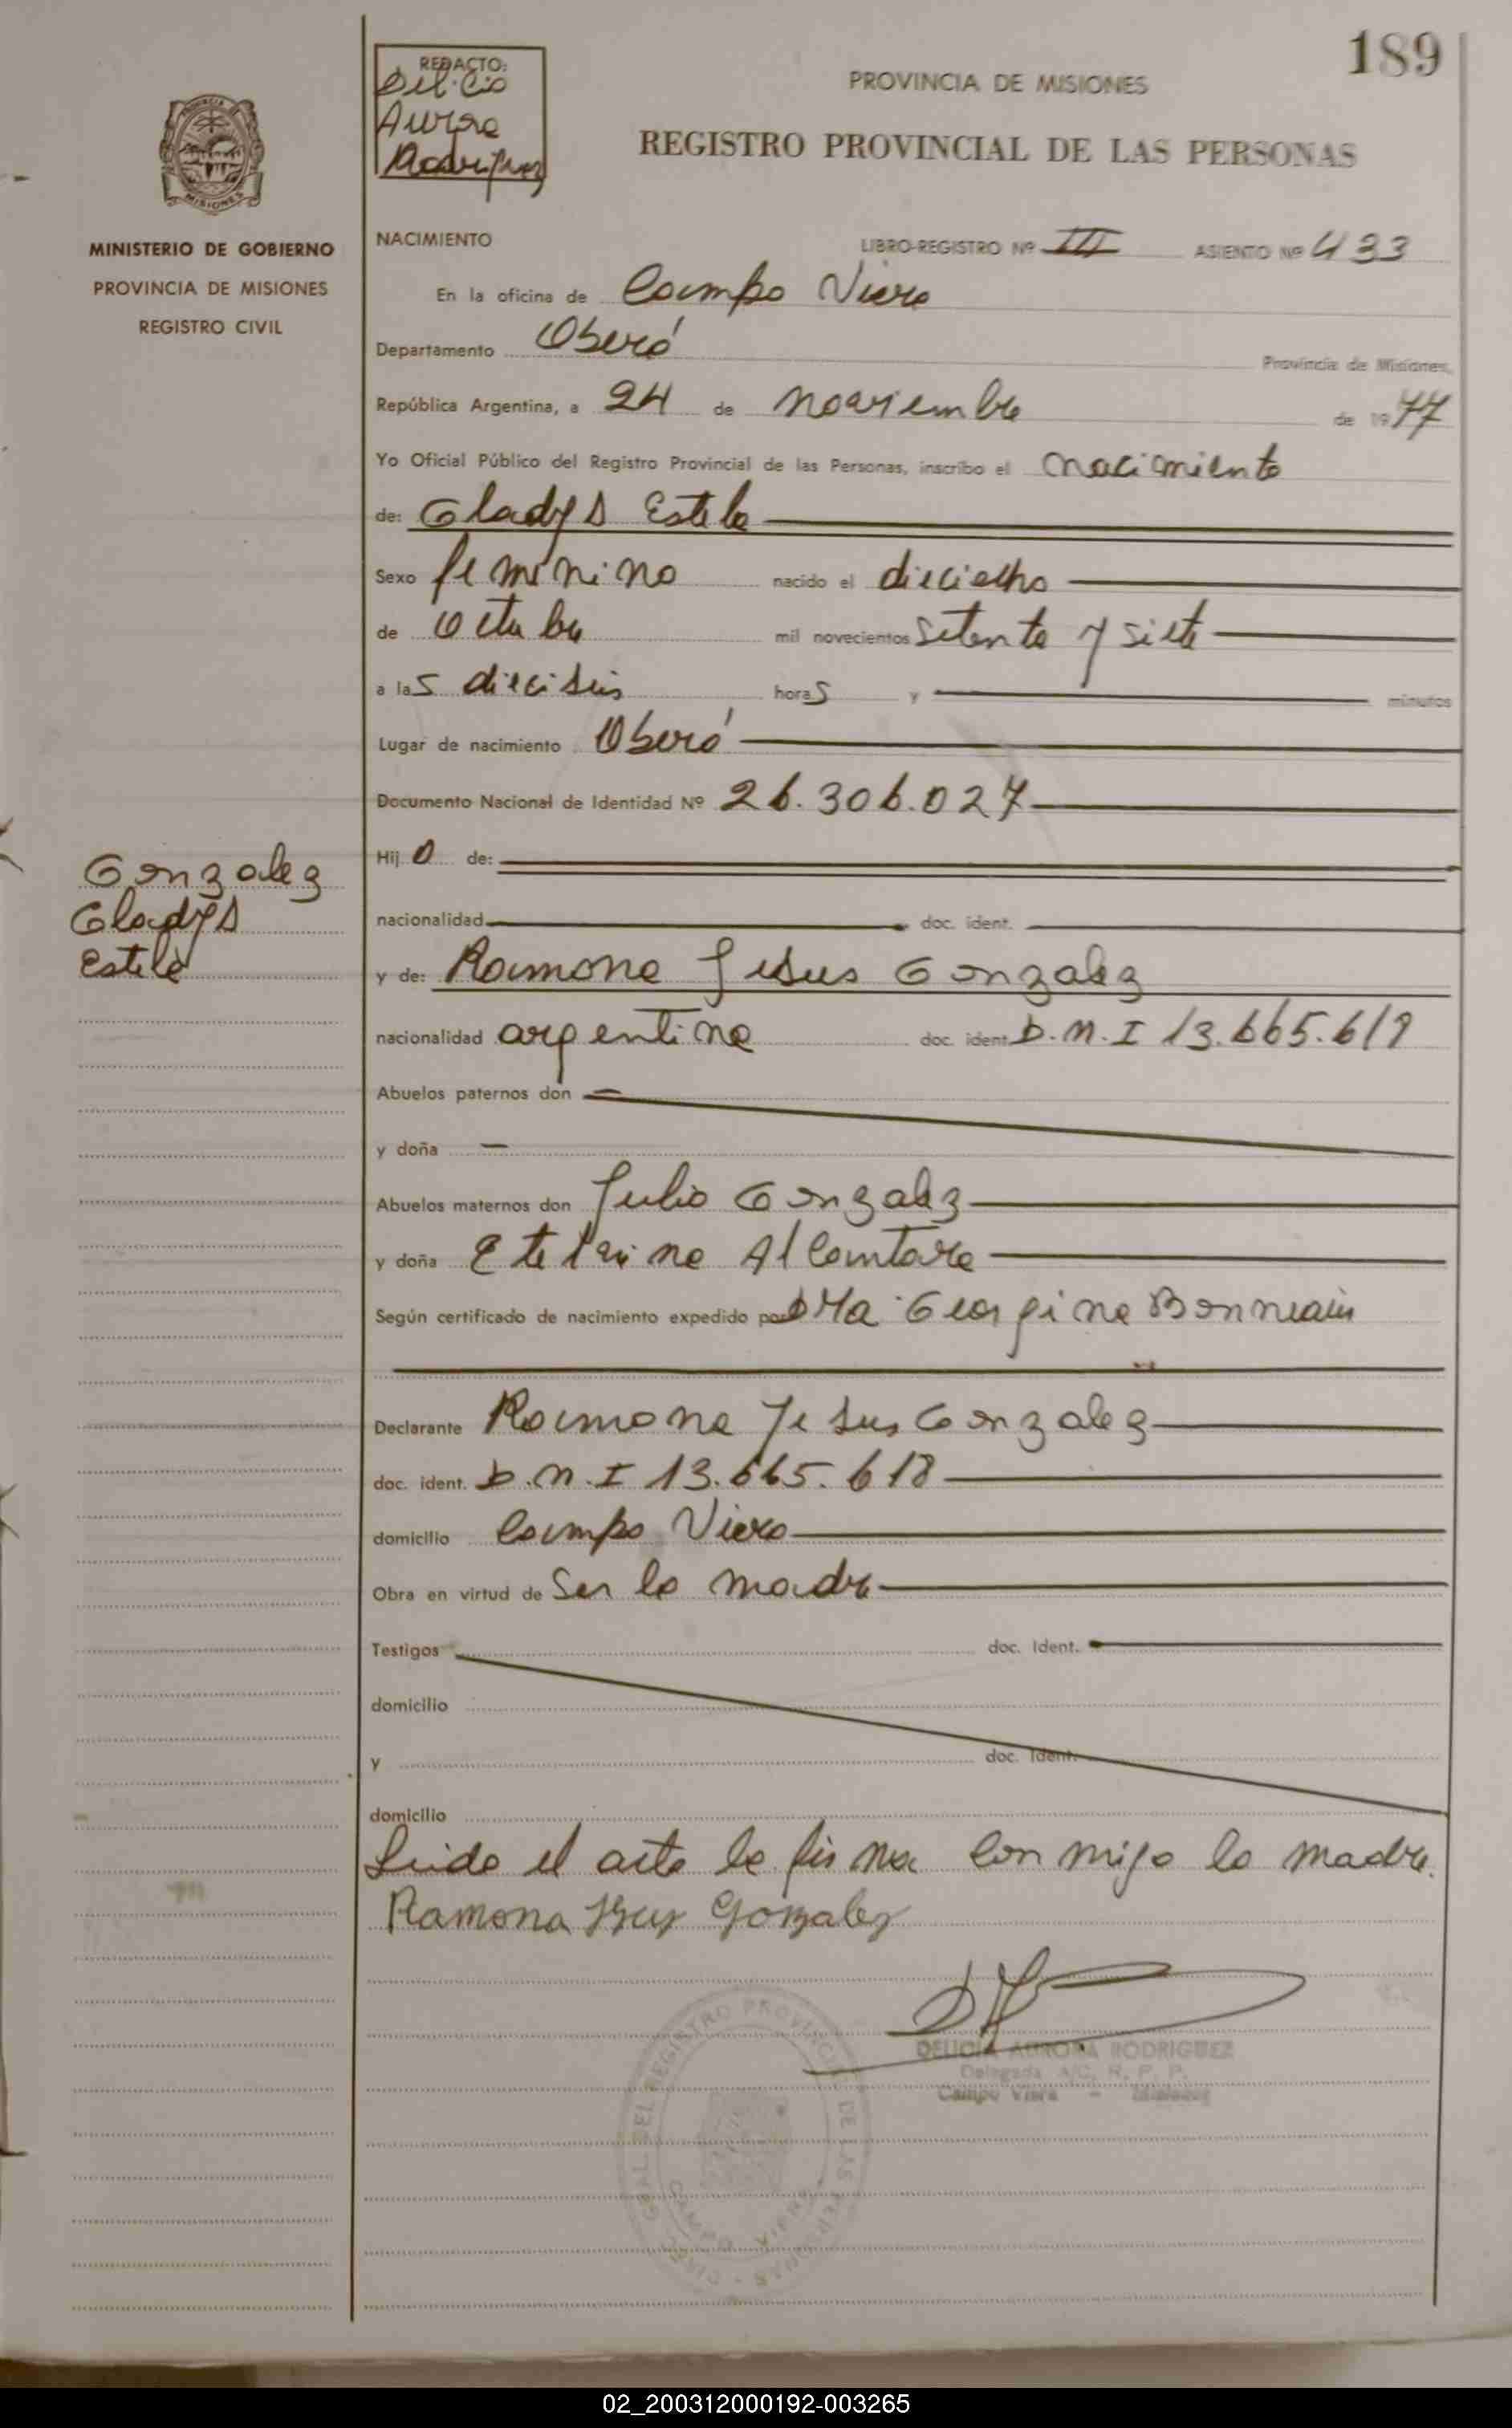 189
REDACTO:
Delicia
Aurora
Rodriguez
PROVINCIA DE MISIONES
REGISTRO PROVINCIAL DE LAS PERSONAS
MISIONES
MINISTERIO DE GOBIERNO
PROVINCIA DE MISIONES
REGISTRO CIVIL
NACIMIENTO
LIBRO-REGISTRO Nº III ASIENTO Nº 433
En la oficina de Campo Viera
Departamento Oberá Provincia de Misiones,
República Argentina, a 24 de noviembre de 1977
Yo Oficial Público del Registro Provincial de las Personas, inscribo el nacimiento
de: Gladys Estela
Sexo femenino nacido el dieciocho
de octubre mil novecientos setenta y siete
a las dieciseis horas y minutos
Lugar de nacimiento Oberá
Documento Nacional de Identidad Nº 26.306.027
Hija de:
nacionalidad doc. ident.
Gonzalez
Gladys
Estela
y de: Ramona Jesus Gonzalez
nacionalidad argentina doc. ident. D.N.I 13.665.619
Abuelos paternos don
y doña
Abuelos maternos don Julio Gonzalez
y doña Alcantara
Según certificado de nacimiento expedido por Georgina
Declarante Ramona Jesus Gonzalez
doc. ident. D.N.I 13.665.618
domicilio Campo Viera
Obra en virtud de Ser la madre
Testigos doc. Ident.
domicilio
y doc. Ident.
domicilio
Leida el acta la firma conmigo la madre.
Ramona Jesus Gonzalez
DELICIA AURORA RODRIGUEZ
Delegada A/C. R. P. P.
Campo Viera - Misiones
02_200312000192-003265